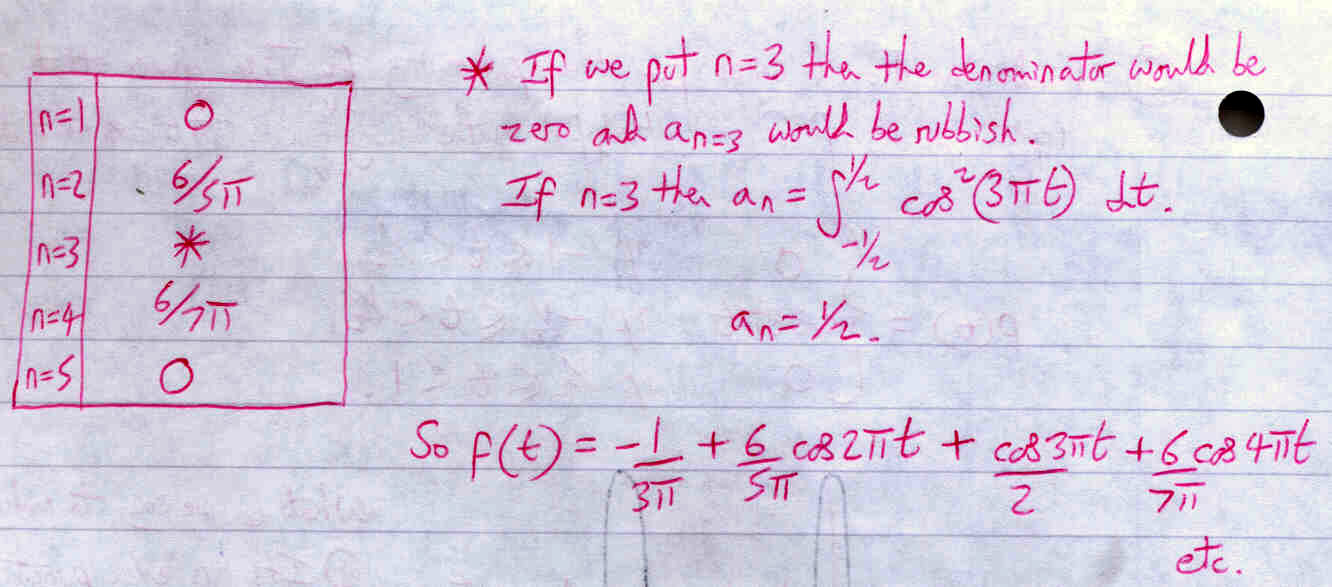 n=1 0
n=2 6/5π
n=3 *
n=4 6/7π
n=5 0
* If we put n=3 then the denominator would be
zero and aₙ₌₃ would be rubbish.
If n=3 then aₙ = ∫_{-1/2}^{1/2} cos²(3πt) dt.
aₙ = 1/2.
So f(t) = -1/3π + 6/5π cos2πt + cos3πt/2 + 6/7π cos4πt
etc.